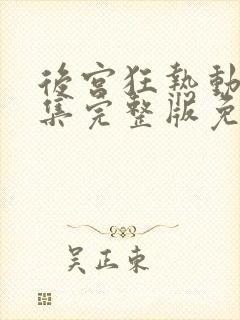 後宮狂熱動
集完整版免
吴正東